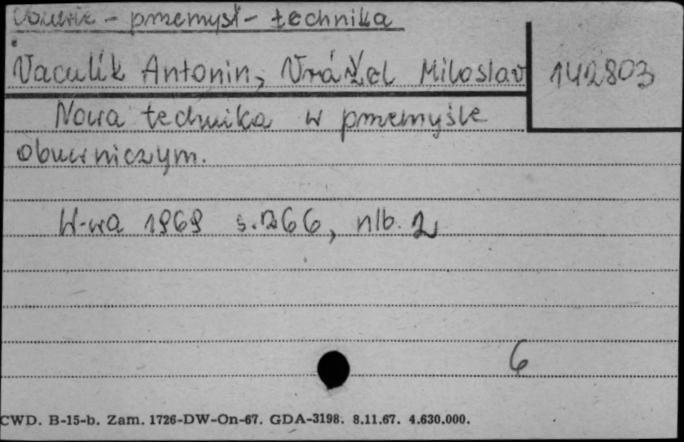 Obuwie - przemysł - technika
Vaculik Antonin, Vrážel Miloslav 142803
Nowa technika w przemyśle
obuwniczym.
W-wa 1969 s. 266, nlb. 2
6
CWD. B-15-b. Zam. 1726-DW-On-67. GDA-3198. 8.11.67. 4.630.000.